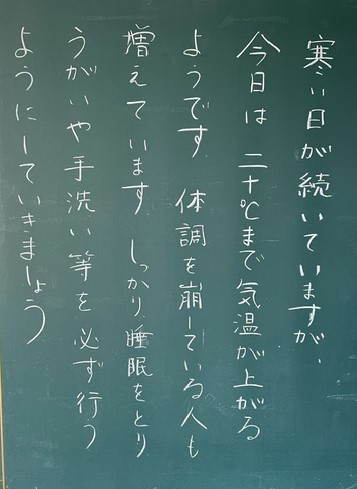 寒い日が続いていますが、
今日は 二十℃まで気温が上がる
ようです 体調を崩している人も
増えています しっかり睡眠をとり
うがいや手洗い等を必ず行う
ようにしていきましょう